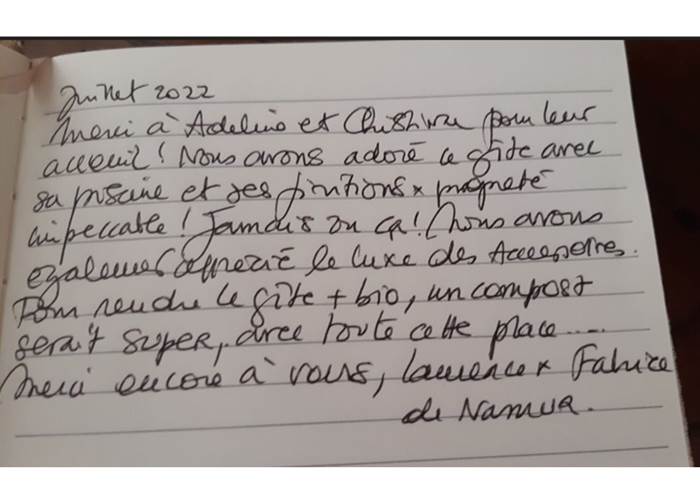 Juillet 2022
Merci à Adeline et Christine pour leur
accueil! Nous avons adoré ce gîte avec
sa piscine et ses finitions x propreté
impeccable! Jamais vu ça! Nous avons
egalement apprecié le luxe des Accessoires.
Pour rendre le gîte + bio, un compost
serait super, avec toute cette place.....
Merci encore à vous, Laurence x Fabrice
de Namur.